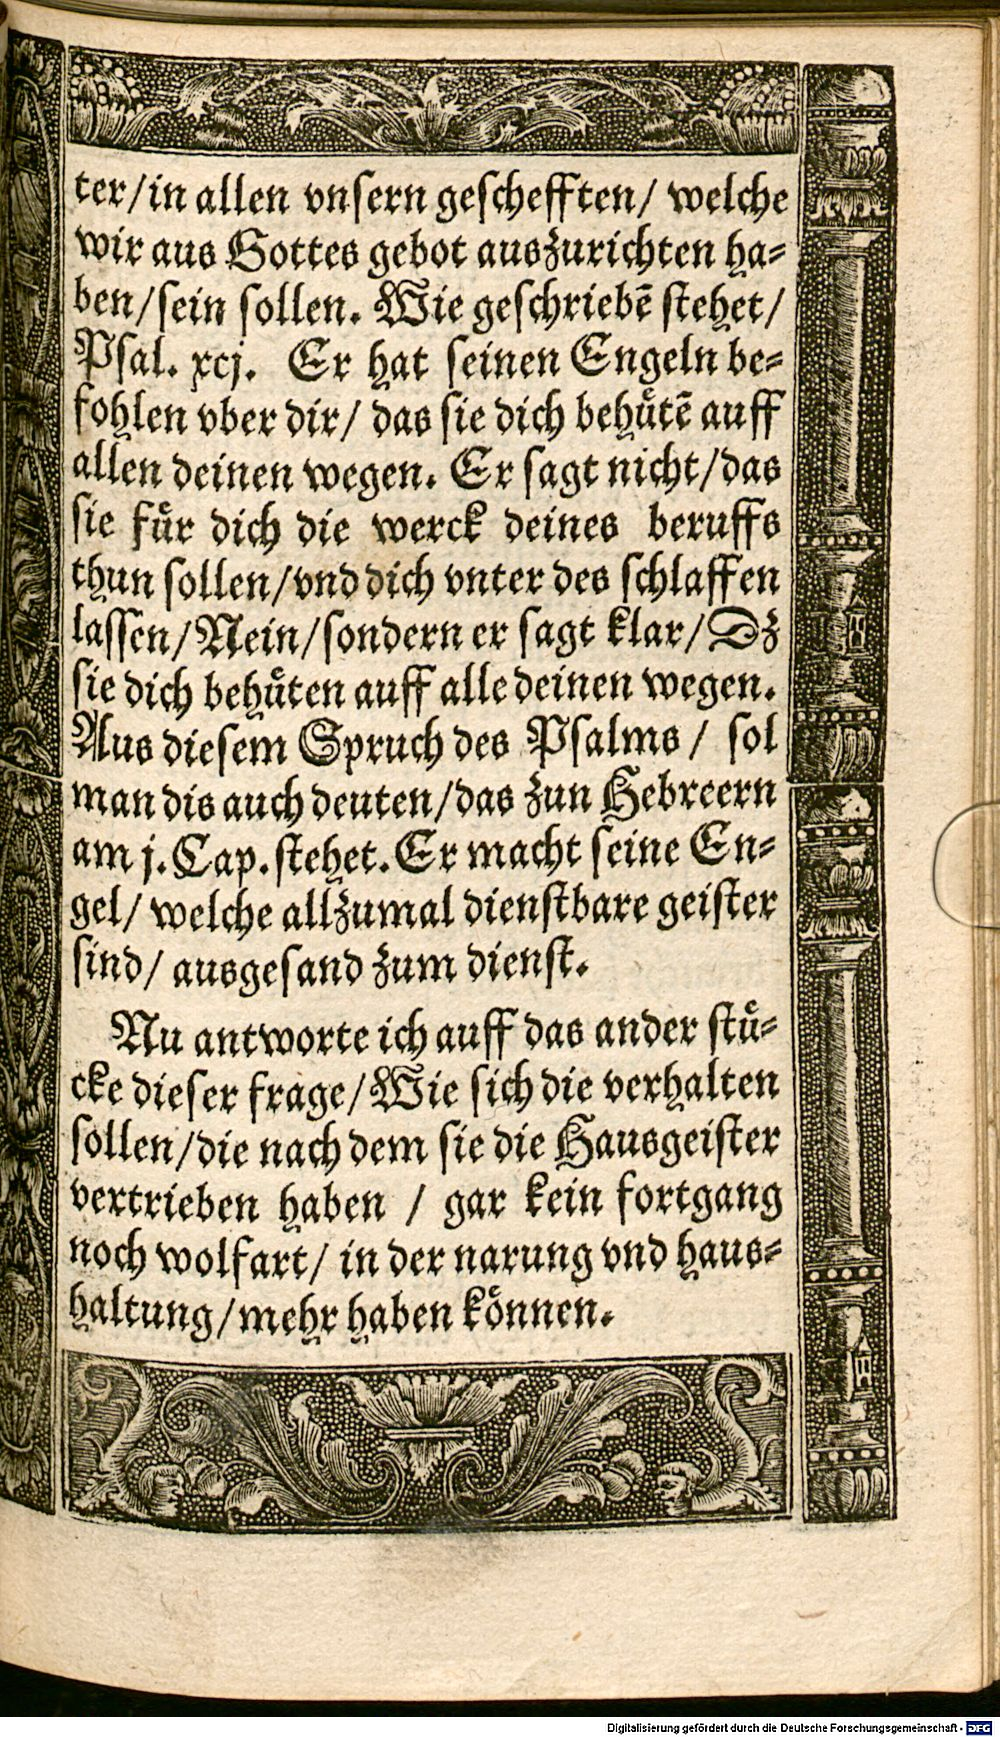 ter/in allen vnsern geschefften/ welche
wir aus Gottes gebot auszurichten ha-
ben/sein sollen. Wie geschriebē stehet/
Psal. xcj. Er hat seinen Engeln be-
fohlen vber dir/ das sie dich behuͤtē auff
allen deinen wegen. Er sagt nicht/das
sie fuͤr dich die werck deines beruffs
thun sollen/vnd dich vnter des schlaffen
lassen/Nein/sondern er sagt klar/Dz
sie dich behuͤten auff alle deinen wegen.
Aus diesem Spruch des Psalms/ sol
man dis auch deuten/das zun Hebreern
am j. Cap. stehet. Er macht seine En-
gel/ welche allzumal dienstbare geister
sind/ ausgesand zum dienst.
Nu antworte ich auff das ander stuͤ-
cke dieser frage/Wie sich die verhalten
sollen/die nach dem sie die Hausgeister
vertrieben haben / gar kein fortgang
noch wolfart/ in der narung vnd haus-
haltung/mehr haben koͤnnen.
Digitalisierung gefördert durch die Deutsche Forschungsgemeinschaft - DFG